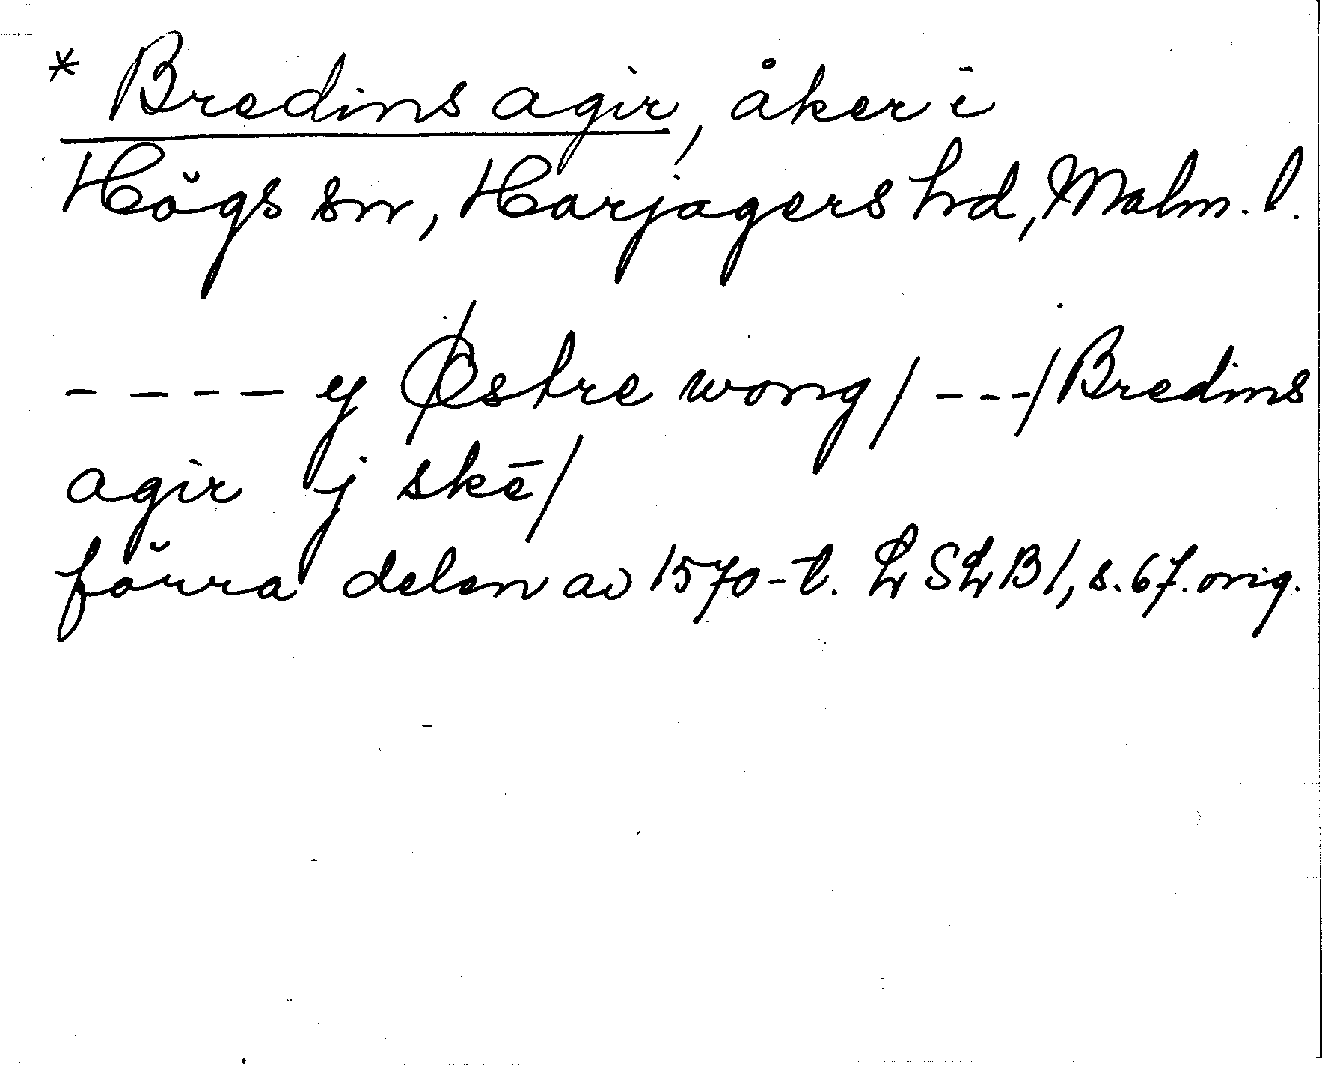 * Bredins agir, åker i
Högs sn, Harjagers hd, Malm. l.
- - - - y Østre wong / - - - / Bredins
agir j skē /
förra delen av 1570-t. LSLB 1, s. 67. orig.